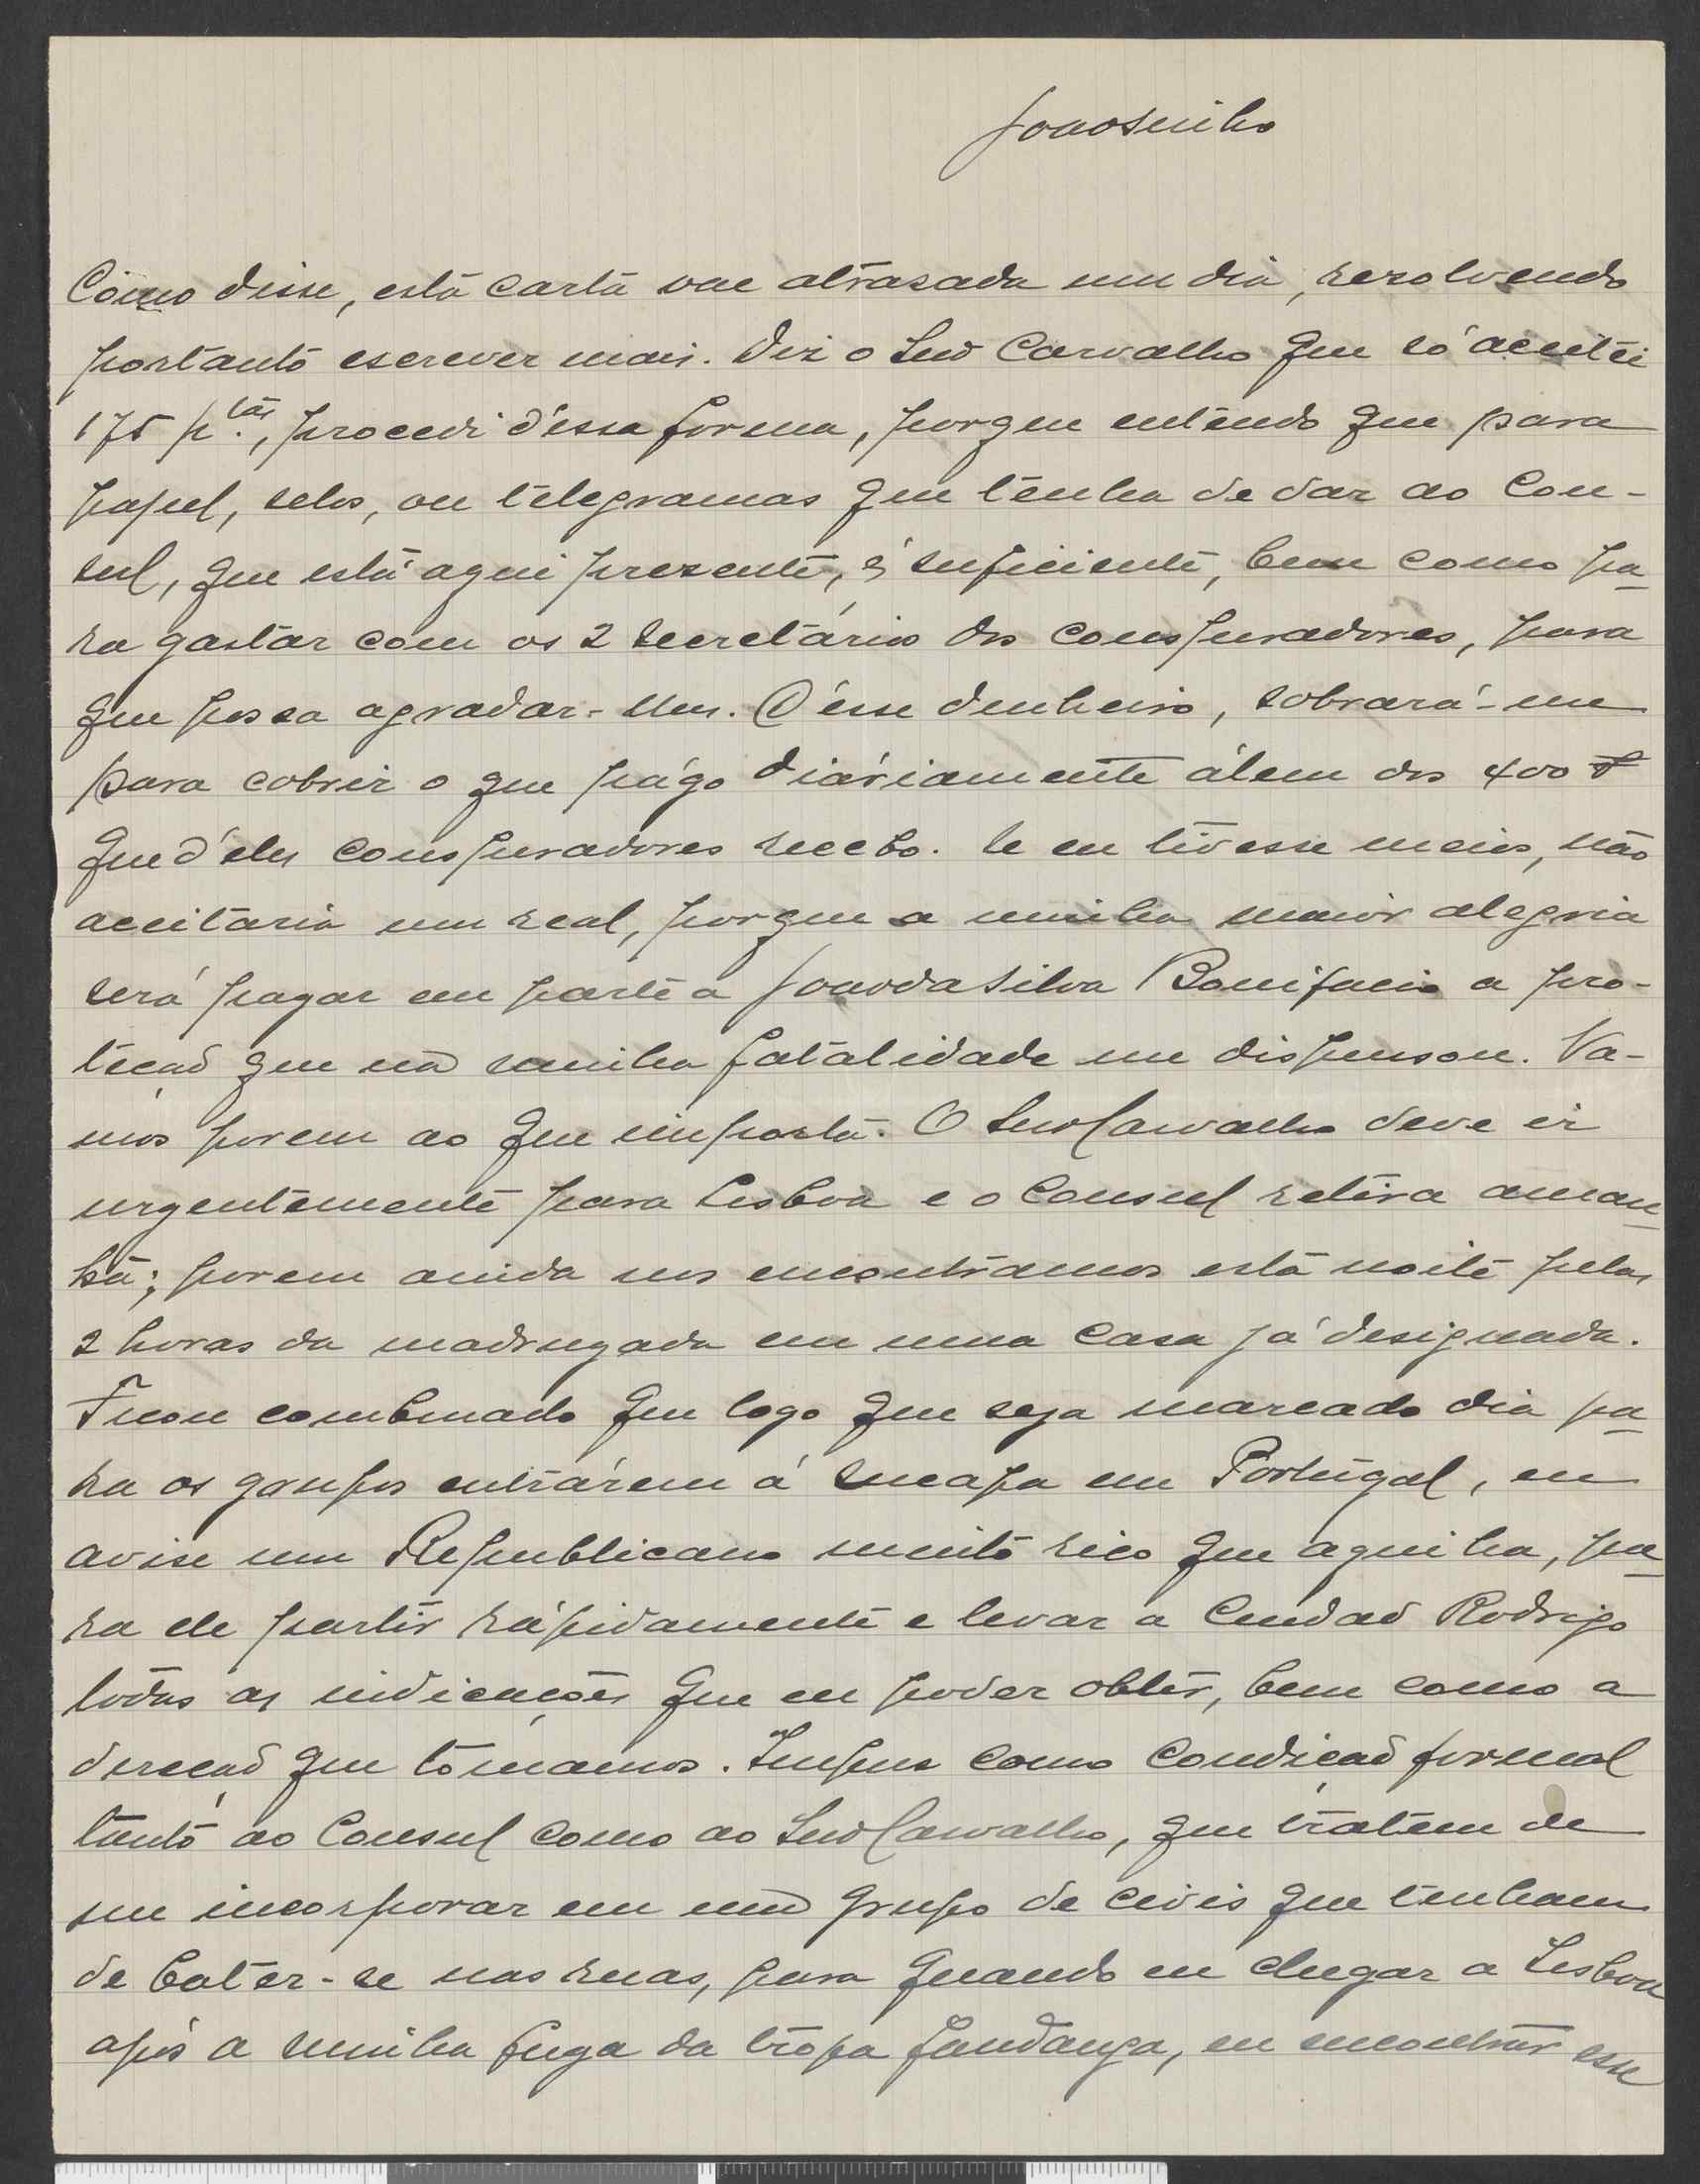 Joaosinho
Como disse, esta carta vae atrasada um dia, resolvendo
portanto escrever mais. Diz o Snr Carvalho que só aceitei
175 p.tas, procedi d'éssa forma, porque entendo que para
papel, selos, ou telegramas que tenha de dar ao Con-
sul, que está aqui presente, é suficiente, bem como pa-
ra gastar com os 2 secretários dos conspuradores, para
que possa agradar-lhes. D'ésse denheiro, sobrará-me
para cobrir o que págo diáriamente álem dos 400 rs
que d'eles conspuradores recebo. Se eu tivesse meios, não
aceitaria um real, porque a minha maior alegria
será pagar em parte a Joao da Silva Bonifacio a pro-
teçaõ que na minha fatalidade me dispensou. Va-
mos porem ao que importa. O Snr Carvalho deve ir
urgentemente para Lisboa e o Consul retira aman-
hã; porem ainda nos encontramos esta noite pelas
2 horas da madrugada em uma casa já designada.
Ficou combinado que logo que seja marcado dia pa-
ra os grupos entrárem á sucapa em Portugal, eu
avise um Republicano muito rico que aqui ha, pa-
ra ele partir rápidamente e levar a Ciudad Rodrigo
todas as indicações que eu poder obter, bem como a
direçaõ que tomamos. Impus como condiçaõ formal
tanto ao Consul como ao Snr Carvalho, que tratem de
me incorporar em um grupo de civis que tenham
de bater-se nas ruas, para quando eu chegar a Lisboa
após a minha fuga da tropa fandanga, eu encontrar esse